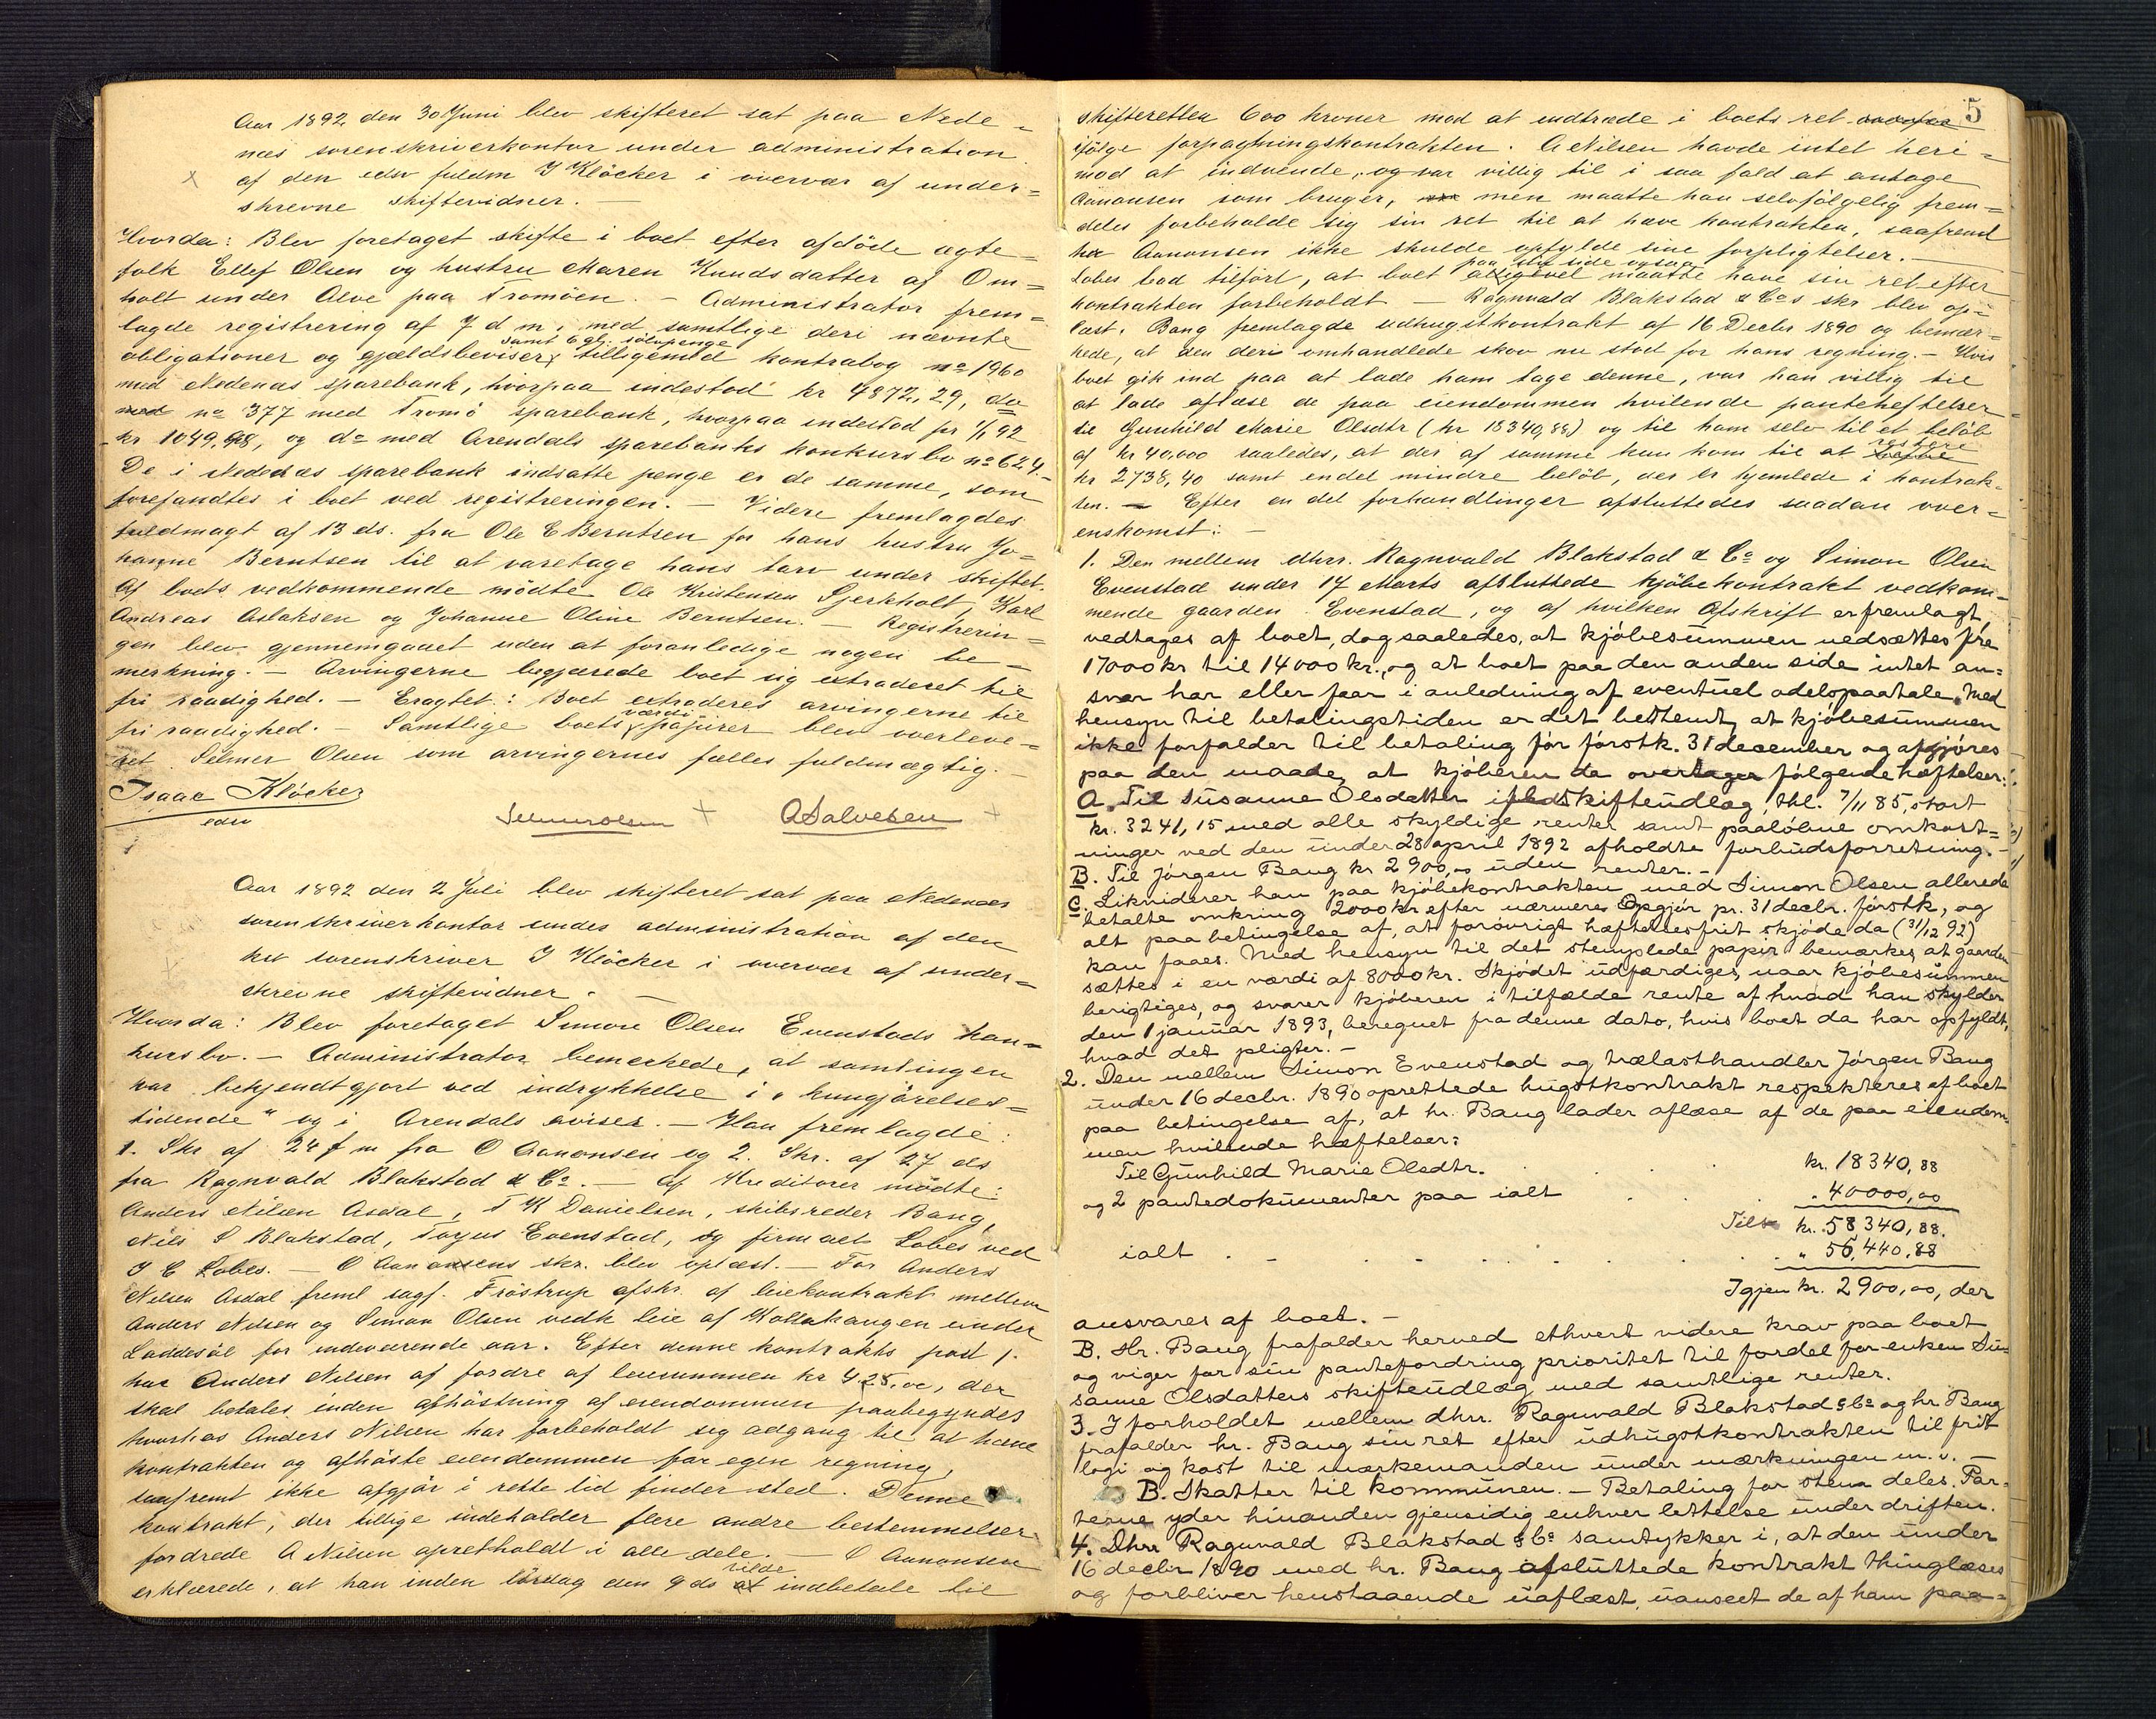 Aar 1892 den 30 Juni blev skifteret sat paa Nede=
næs sorenskriverkontor under administration
af den edsv fuldm I Kløcker i overvær af under=
skrevne skiftevidner. —
Hvorda: Blev foretaget skifte i boet efter afdøde ægte=
folk Ellef Olsen og hustru Maren Knudsdatter af Om=
holt under Alve paa Tromøen. — Administrator frem=
lagde registrering af 7 d m, med samtlige deri nævnte
samt 6 gl. sølvpenge
obligationer og gjældsbeviser, tilligemed kontrabog no 1960
med Nedenæs sparebank, hvorpaa indestod kr 4872,29, do
med no 377 med Tromø sparebank, hvorpaa indestod pr 1/1 92
kr 1049,98, og do med Arendals sparebanks konkursbo no 624.
De i Nedenæs sparebank indsatte penge er de samme, som
forefandtes i boet ved registreringen. — Videre fremlagdes
fuldmagt af 13 ds. fra Ole E Berntsen for hans hustru Jo=
hanne Berntsen til at varetage hans tarv under skiftet.
Af boets vedkommende mødte Ole Kristensen Gjerkholt, Karl
Andreas Aslaksen og Johanne Oline Berntsen. — Registrerin=
gen blev gjennemgaaet uden at foranledige nogen be=
merkning. — Arvingerne begjærede boet sig extraderet til
fri raadighed. — Eragtet: Boet extraderes arvingerne til
værdi
fri raadighed. — Samtlige boets papirer blev overleve=
ret Selmer Olsen som arvingernes fælles fuldmægtig. —
Isaac Kløcker
edsv
Selmer Olsen + ASalvesen +
Aar 1892 den 2 Juli blev skifteret sat paa Nedenæs
sorenskriverkontor under administration af den
kst sorenskriver I Kløcker i overvær af under=
skrevne skiftevidner. —
Hvorda: Blev foretaget Simon Olsen Evenstads kon=
kursbo. — Administrator bemerkede, at samlingen
var bekjendtgjort ved indrykkelse i "kungjørelses=
tidende" og i Arendals aviser. — Han fremlagde:
1. Skr af 24 f m fra O Aanonsen og 2. Skr. af 27 ds
fra Ragnvald Blakstad & Co. — Af Kreditorer mødte:
Anders Nilsen Asdal, T K Danielsen, skibsreder Bang,
Nils S Blakstad, Torjus Evenstad, og firmaet Lobes ved
J C Lobes. — O Aanonsens skr. blev oplæst. — For Anders
Nilsen Asdal freml sagf. Frøstrup afskr. af leiekontrakt mellem
Anders Nilsen og Simon Olsen vedk leie af under
Løddesøl for indeværende aar. Efter denne kontrakts post 1.
har Anders Nilsen af fordre af leiesummen kr 425,00, der
skal betales inden afhøstning af eiendommen paabegyndes
hvorhos Anders Nilsen har forbeholdt sig adgang til at hæve
kontrakten og afhøste eiendommen for egen regning,
saafremt ikke afgjør i rette tid finder sted. Denne
kontrakt, der tillige indeholder flere andre bestemmelser
fordrede A Nilsen opretholdt i alle dele. — O Aanonsen
vilde
erklærede, at han inden lørdag den 9 ds at indbetale til
5
skifteretten 600 kroner mod at indtræde i boets ret
ifølge forpagtningskontrakten. A Nilsen havde intet heri=
mod at indvende, og var villig til i saa fald at antage
Aanonsen som bruger, men maatte han selvfølgelig frem=
deles forbeholde sig sin ret til at hæve kontrakten, saafremt
Aanonsen ikke skulde opfylde sine forpligtelser. —
paa sin side ogsaa
Lobes bad tilført, at boet alligevel maatte have sin ret efter
kontrakten forbeholdt — Ragnvald Blakstad & Cos skr blev op=
læst. Bang fremlagde udhugstkontrakt af 16 Decbr 1890 og bemær=
kede, at den deri omhandlede skov nu stod for hans regning. — Hvis
boet gik ind paa at lade ham tage denne, var han villig til
at lade aflæse de paa eiendommen hvilende panteheftelser
til Gunhild Marie Olsdtr (kr 18340,88) og til ham selv til et beløb
restere
af kr 40.000 saaledes, at der af samme kun kom til at
kr 2738,40 samt endel mindre beløb, der er hjemlede i kontrak=
ten. — Efter en del forhandlinger afsluttedes saadan over=
enskomst: —
1. Den mellem dhrr. Ragnvald Blakstad & Co og Simon Olsen
Evenstad under 17 Marts afsluttede kjøbekontrakt vedkom=
mende gaarden Evenstad, og af hvilken afskrift er fremlagt,
vedtages af boet, dog saaledes, at kjøbesummen nedsættes fra
17000 kr til 14000 kr., og at boet paa den anden side intet an=
svar har eller faar i anledning af eventuel odelspaatale. Med
hensyn til betalingstiden er det bestemt, at kjøbesummen
ikke forfalder til betaling før førstk. 31 december og afgjøres
paa den maade, at kjøberen da overtager følgende hæftelser:
A. Til Susanne Olsdatter skifteudlæg, thl. 7/11 85, stort
kr. 3241,15 med alle skyldige renter samt paaløbne omkost=
ninger ved den under 28 april 1892 afholdte forbudsforretning. —
B. Til Jørgen Bang kr 2900,00 uden renter. —
C. Likviderer han paa kjøbekontrakten med Simon Olsen allerede
betalte omkring 2000 kr efter nærmere opgjør pr. 31 decbr. førstk, og
alt paa betingelse af, at forøvrigt hæftelsesfrit skjøde da (31/12 92)
kan faaes. Med hensyn til det stemplede papir bemærkes, at gaarden
sættes i en værdi af 8000 kr. Skjødet udfærdiges, naar kjøbesummen
berigtiges, og svarer kjøberen i tilfælde rente af hvad han skylder
den 1 januar 1893, beregnet fra denne dato, hvis boet da har opfyldt,
hvad det pligter. —
2. Den mellem Simon Evenstad og trælasthandler Jørgen Bang
under 16 decbr. 1890 oprettede hugstkontrakt respekteres af boet
paa betingelse af, at hr. Bang lader aflæse af de paa eiendom=
men hvilende hæftelser:
Til Gunhild Marie Olsdtr. . . . kr. 18340,88
og 2 pantedokumenter paa ialt . . . " 40000,00
Tils kr. 58340,88.
ialt . . . . . . . . " 55,440,88
Igjen kr. 2900,00, der
ansvares af boet. —
B. Hr. Bang frafalder herved ethvert videre krav paa boet
og viger for sin pantefordring prioritet til fordel for enken Su=
sanne Olsdatters skifteudlæg med samtlige renter.
3. I forholdet mellem dhrr. Ragnvald Blakstad & Co og hr Bang
frafalder hr. Bang sin ret efter udhugstkontrakten til frit
logi og kost til mærkemanden under mærkningen m. v. —
B. Skatter til kommunen. — Betaling for stem deles. Par=
terne yder hinanden gjensidig enhver lettelse under driften.
4. Dhrr Ragnvald Blakstad & Co samtykker i, at den under
16 decbr 1890 med hr. Bang afsluttede kontrakt thinglæses
og forbliver henstaaende uaflæst, uanseet de af ham paa=